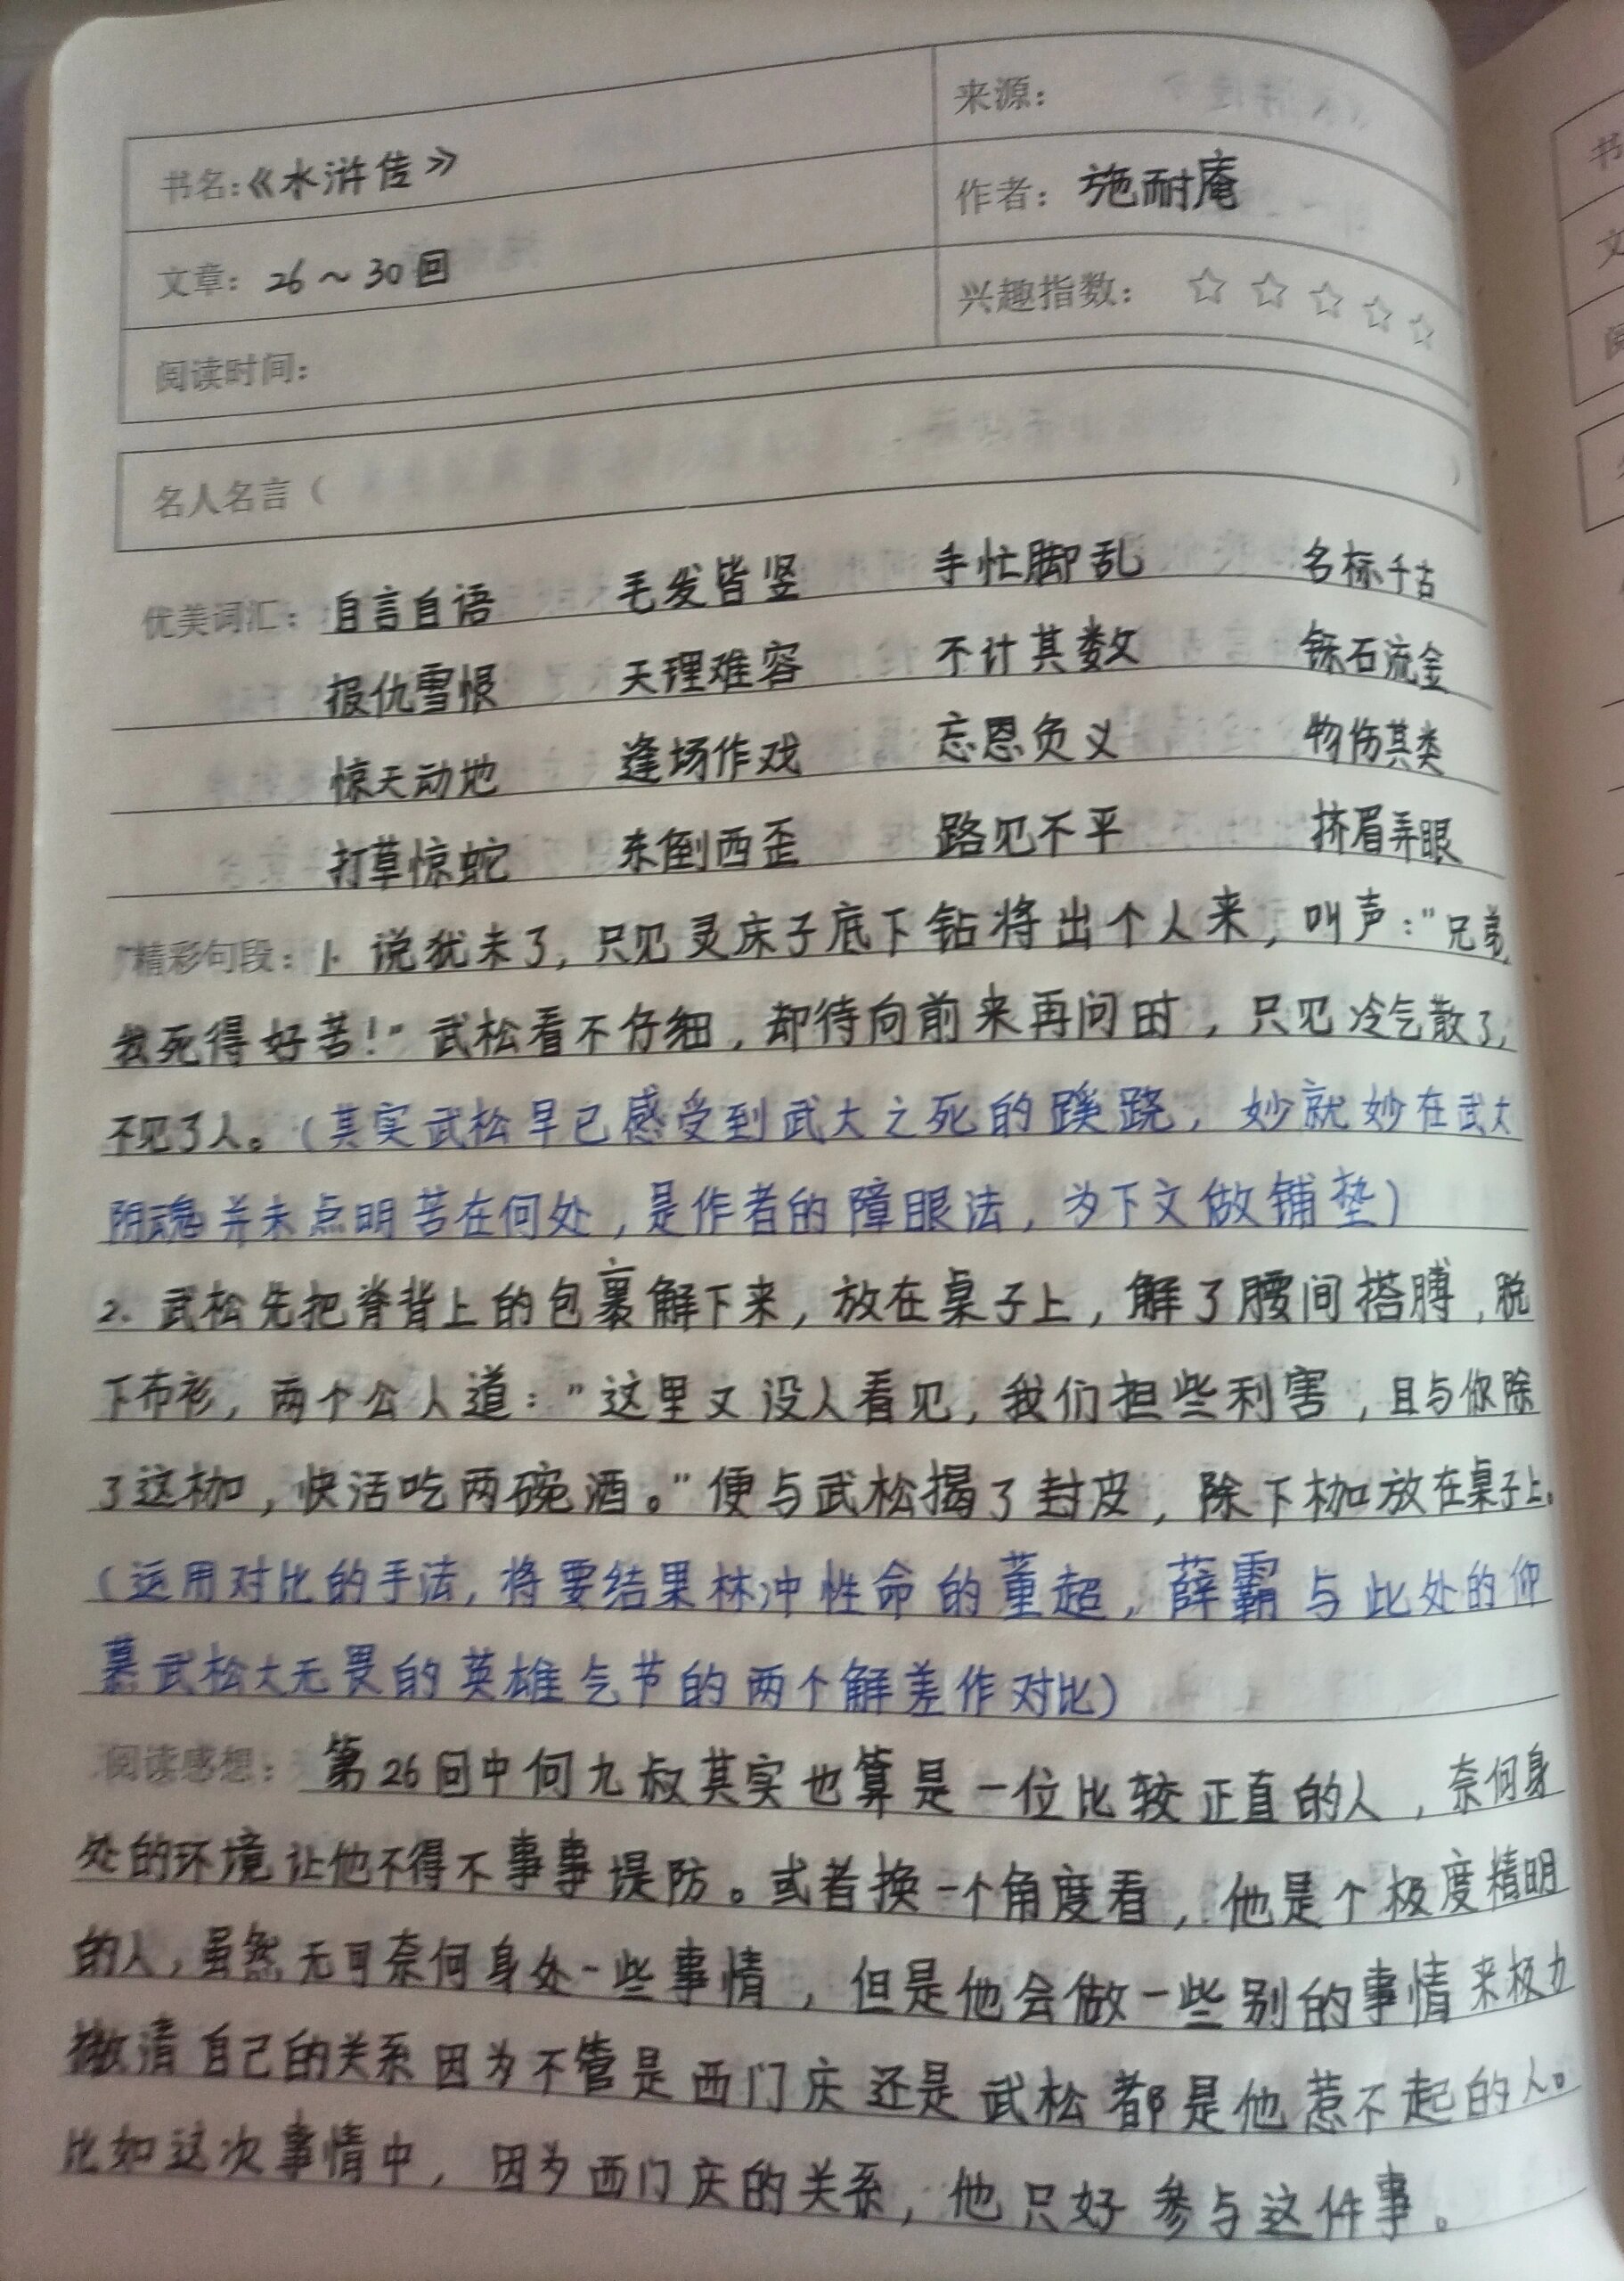 来源：
书名：《水浒传》
作者：施耐庵
文章：26～30回
兴趣指数：☆☆☆☆☆
阅读时间：
名人名言（ ）
优美词汇：自言自语 毛发皆竖 手忙脚乱 名标千古
报仇雪恨 天理难容 不计其数 铄石流金
惊天动地 逢场作戏 忘恩负义 物伤其类
打草惊蛇 东倒西歪 路见不平 挤眉弄眼
精彩句段：1. 说犹未了，只见灵床子底下钻将出个人来，叫声："兄弟，
我死得好苦！"武松看不仔细，却待向前来再问时，只见冷气散了，
不见了人。（其实武松早已感受到武大之死的蹊跷，妙就妙在武大
阴魂并未点明苦在何处，是作者的障眼法，为下文做铺垫）
2. 武松先把脊背上的包裹解下来，放在桌子上，解了腰间搭膊，脱
下布衫，两个公人道："这里又没人看见，我们担些利害，且与你除
了这枷，快活吃两碗酒。"便与武松揭了封皮，除下枷放在桌子上。
（运用对比的手法，将要结果林冲性命的董超，薛霸与此处的仰
慕武松大无畏的英雄气节的两个解差作对比）
阅读感想：第26回中何九叔其实也算是一位比较正直的人，奈何身
处的环境让他不得不事事提防。或者换一个角度看，他是个极度精明
的人，虽然无可奈何身处一些事情，但是他会做一些别的事情来极力
撇清自己的关系因为不管是西门庆还是武松都是他惹不起的人。
比如这次事情中，因为西门庆的关系，他只好参与这件事。